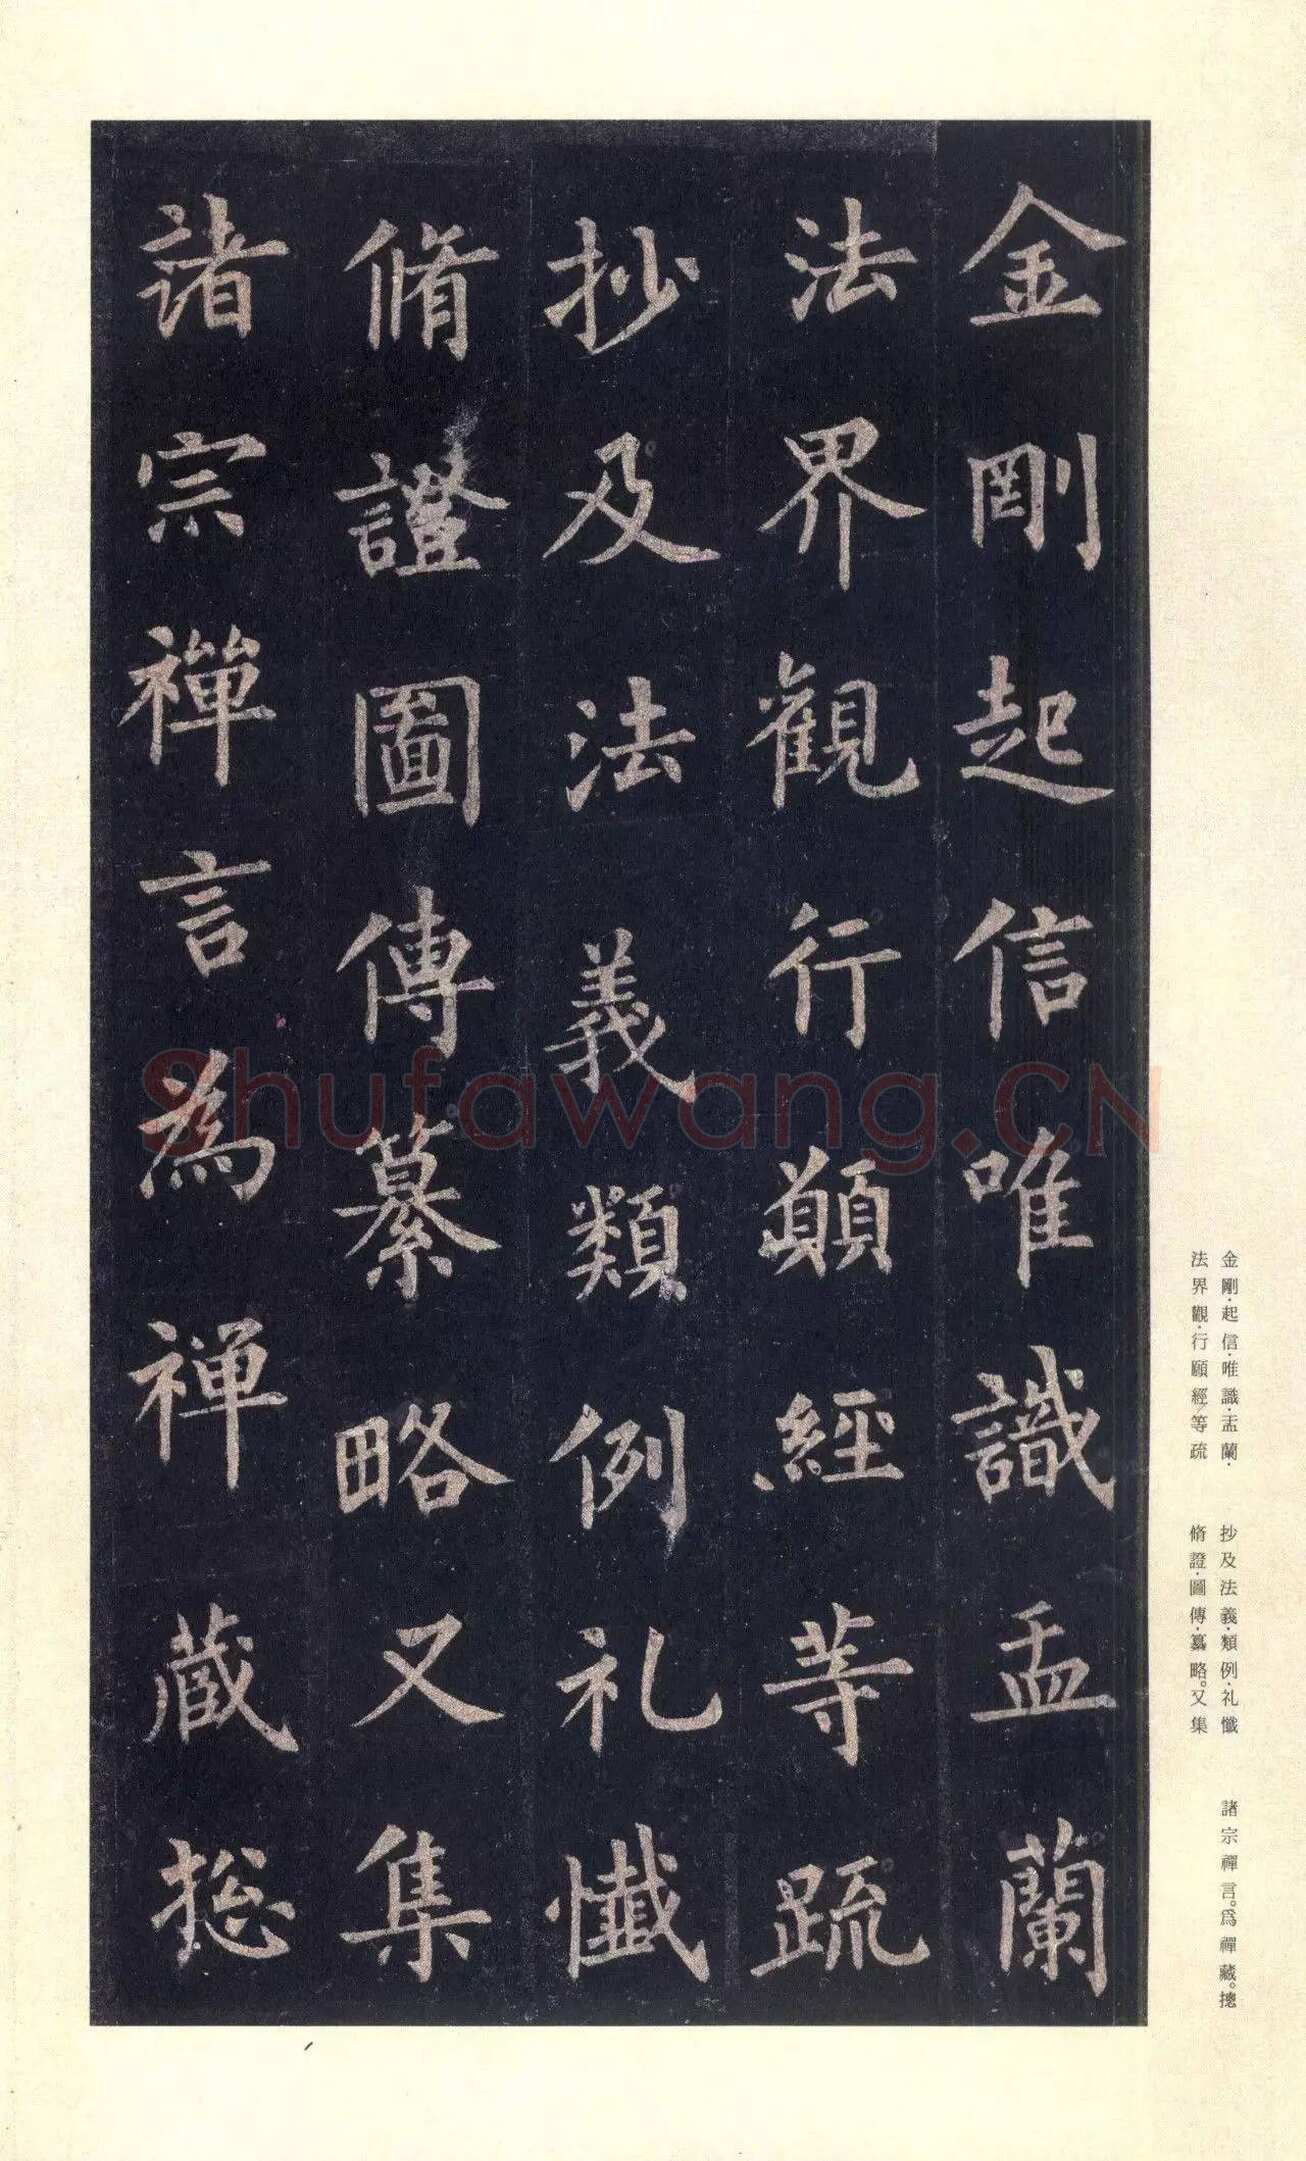 金剛起信唯識盂蘭
法界觀行願經等疏
抄及法義類例礼懺
脩證圖傳纂略又集
諸宗禪言為禪藏捴
金剛·起信·唯識·盂蘭·
法界觀·行願經等疏
抄及法義·類例·礼懺
脩證·圖傳·纂略。又集
諸宗禪言。爲禪藏。摠
Shufawang.CN